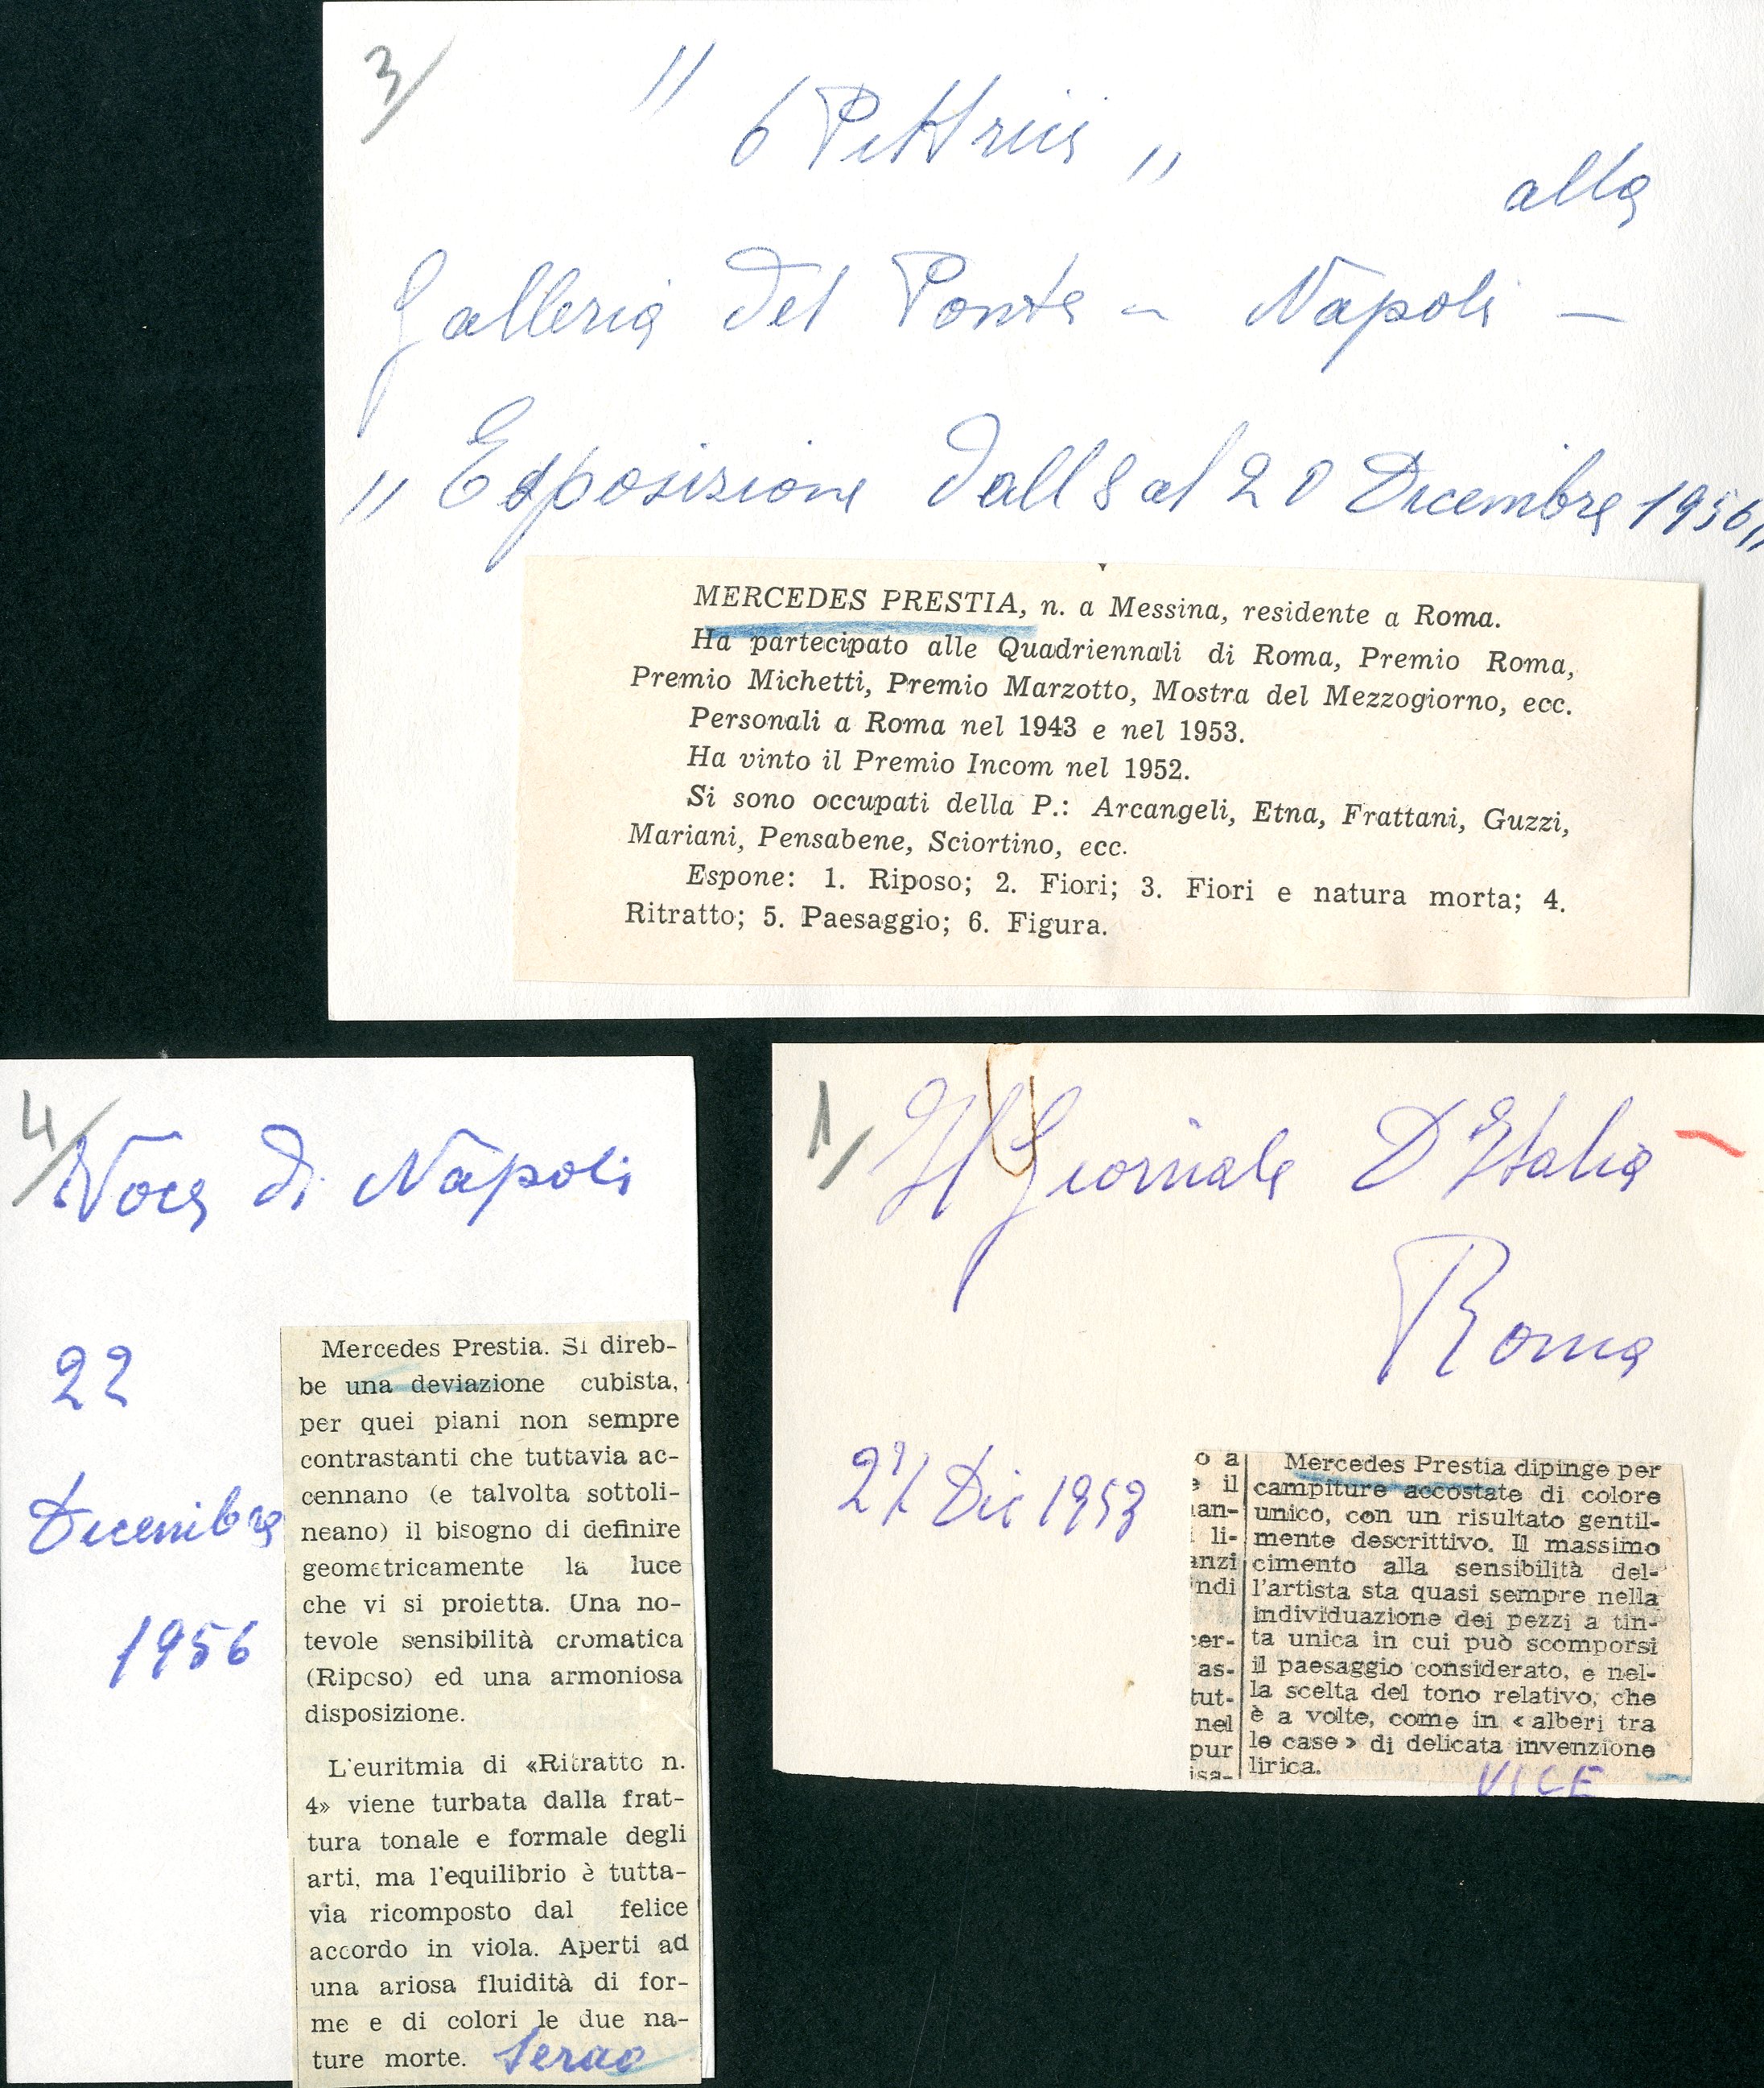 3/
"6 Pittrici"
alla
Galleria del Ponte - Napoli -
"Esposizione dall 8 al 20 Dicembre 1956"
MERCEDES PRESTIA, n. a Messina, residente a Roma.
Ha partecipato alle Quadriennali di Roma, Premio Roma,
Premio Michetti, Premio Marzotto, Mostra del Mezzogiorno, ecc.
Personali a Roma nel 1943 e nel 1953.
Ha vinto il Premio Incom nel 1952.
Si sono occupati della P.: Arcangeli, Etna, Frattani, Guzzi,
Mariani, Pensabene, Sciortino, ecc.
Espone: 1. Riposo; 2. Fiori; 3. Fiori e natura morta; 4.
Ritratto; 5. Paesaggio; 6. Figura.
4/
Voce di Napoli
22
Decembre
1956
Mercedes Prestia. Si direb-
be una deviazione cubista,
per quei piani non sempre
contrastanti che tuttavia ac-
cennano (e talvolta sottoli-
neano) il bisogno di definire
geometricamente la luce
che vi si proietta. Una no-
tevole sensibilità cromatica
(Riposo) ed una armoniosa
disposizione.
L'euritmia di «Ritratto n.
4» viene turbata dalla frat-
tura tonale e formale degli
arti, ma l'equilibrio è tutta-
via ricomposto dal felice
accordo in viola. Aperti ad
una ariosa fluidità di for-
me e di colori le due na-
ture morte.
Serao
1/
Il Giornale D'Italia -
Roma
Dic 1953
o a
e il
an-
li-
anzi
ndi
cer-
as-
tut-
nel
pur
isa-
Mercedes Prestia dipinge per
campiture accostate di colore
unico, con un risultato gentil-
mente descrittivo. Il massimo
cimento alla sensibilità del-
l'artista sta quasi sempre nella
individuazione dei pezzi a tin-
ta unica in cui può scomporsi
il paesaggio considerato, e nel-
la scelta del tono relativo, che
è a volte, come in «alberi tra
le case» di delicata invenzione
lirica.
VICE